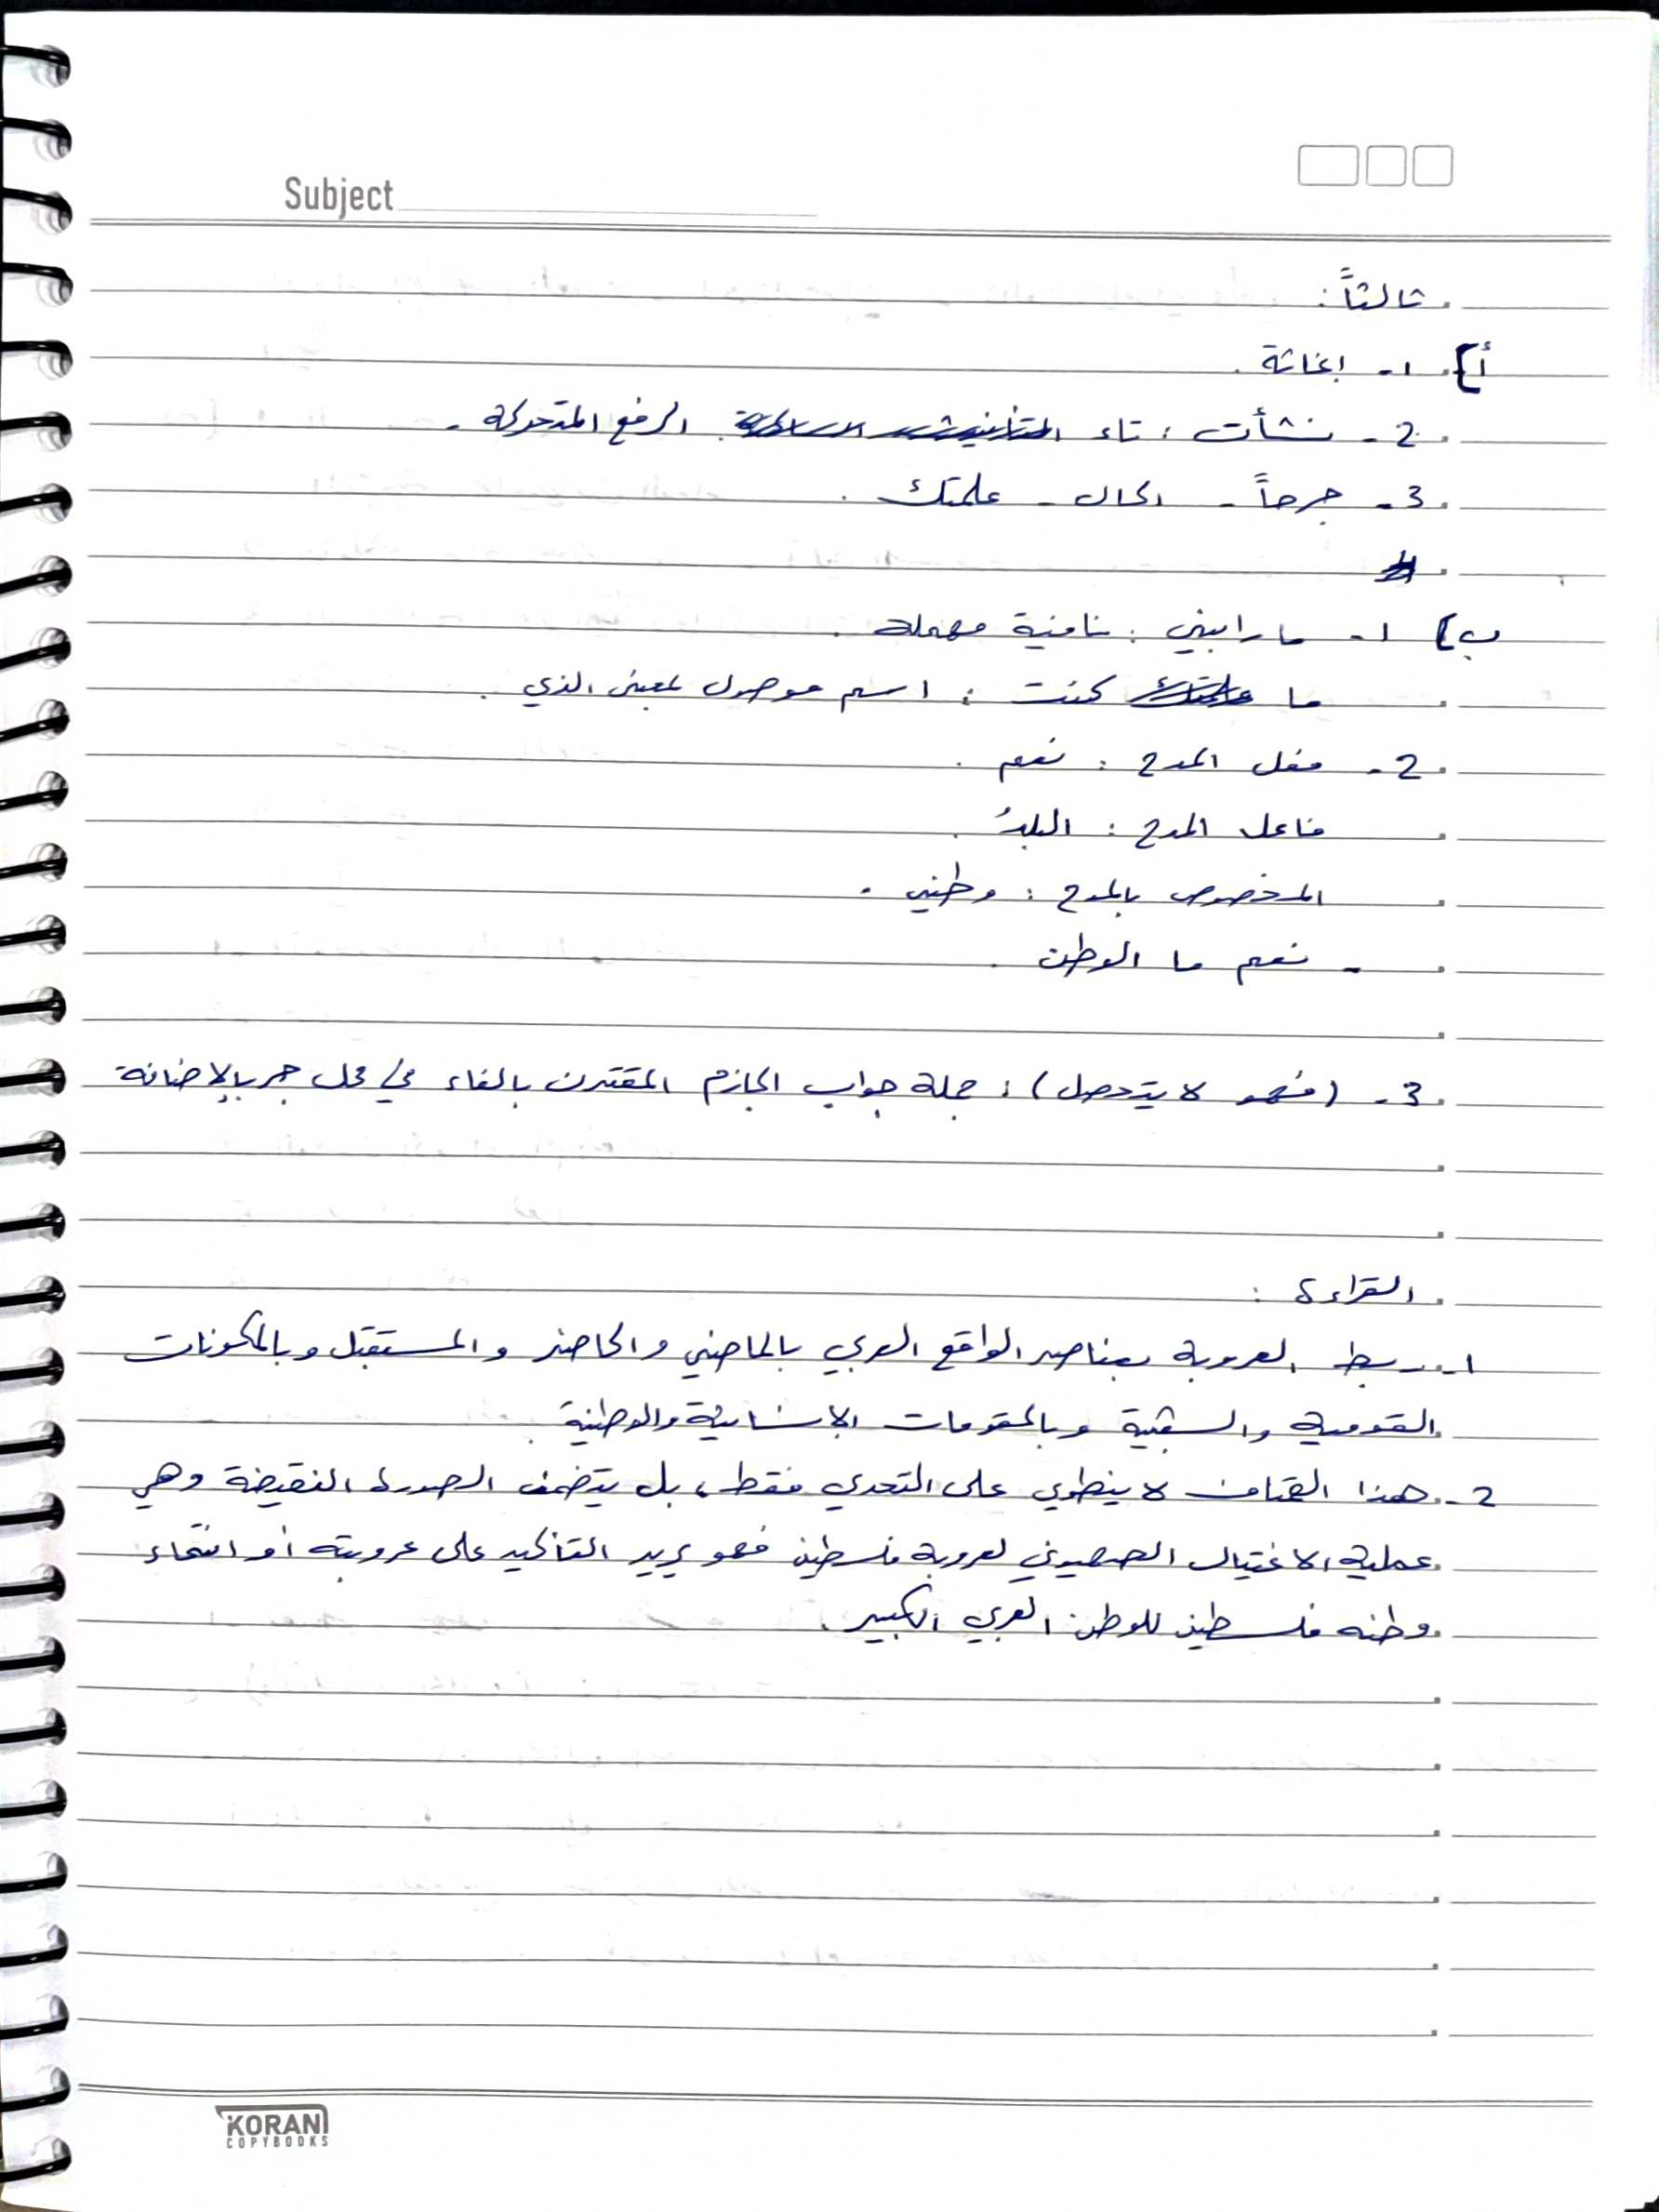 Subject
ثالثاً :
أ] ١- إغاثة .
2- نشأت : تاء الرفع المتحركة .
3- جرحاً - الحال - علمتك .
ب] ١- ما رابني : نافية مهملة .
ما كنت : اسم موصول بمعنى الذي .
2- فعل المدح : نعم .
فاعل المدح : البلدُ .
المخصوص بالمدح : وطني .
- نعم ما الوطن .
3- (فهو لا يتحصل) : جملة جواب الجازم المقترن بالفاء في محل جر بالإضافة
القراءة :
١- ربط العروبة بعناصر الواقع العربي بالماضي والحاضر والمستقبل وبالمكونات
القومية والشعبية وبالمقومات الإنسانية والوطنية .
2- هذا الهتاف لا ينطوي على التحدي فقط، بل يتضمن الصورة النقيضة وهي
عملية الاغتيال الصهيوني لعروبة فلسطين فهو يريد التأكيد على عروبته أو انتماء
وطنه فلسطين للوطن العربي الكبير .
KORANI
COPYBOOKS